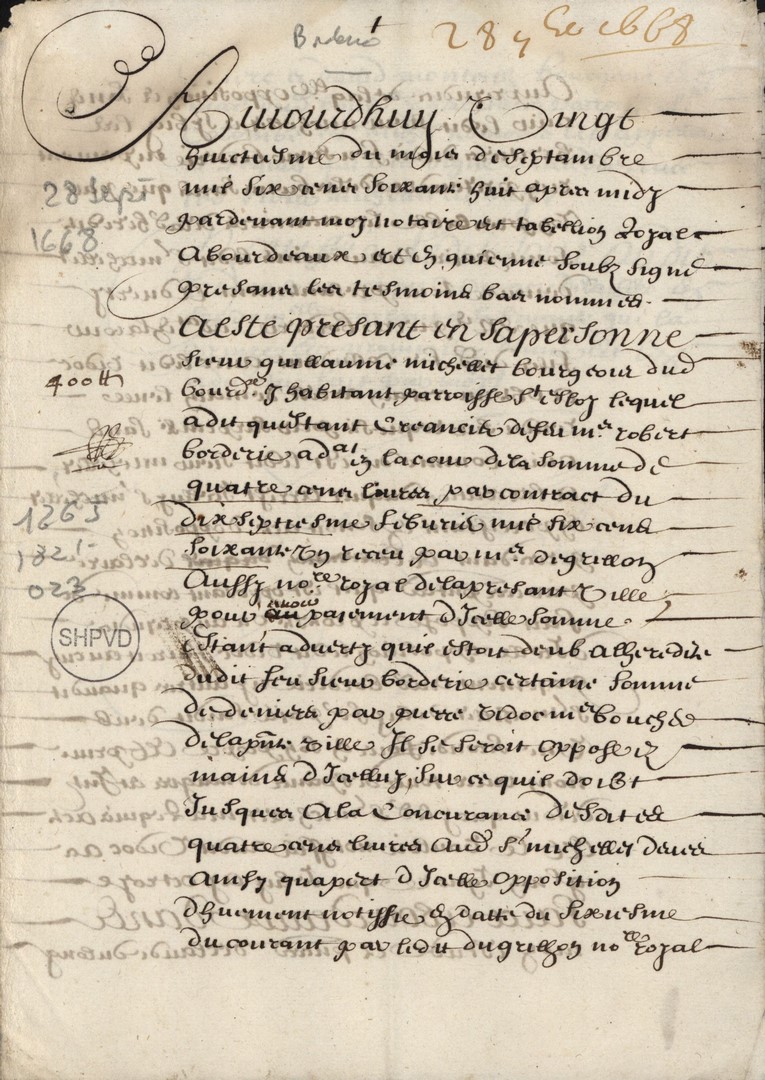 28 7bre 1668
Aujourdhuy Vingt
huictiesme du mois de septambre
mil six cens soixante huit apres midy
pardevant moy notaire et tabellion Royal
a bourdeaux et en guienne soubz signé
presans les tesmoins bas nommes
a esté presant en sa personne
sieur guillaume michellet bourgeois dud
bourde y habitant parroisse st esloy lequel
400tt
a dit questant Creancier de feu me robert
borderie adat en la cour de la somme de
quatre cens livres par contract du
dix septiesme feburier mil six cens
soixante un receu par me degrillon
Aussy nore royal de la presant Ville
pour paiement d'Icelle somme
Estant adverty quil estoit deub a lheredite
dudit feu sieur borderie certaine somme
de deniers par pierre Vidoc me boucher
de la pnte Ville Il se seroit oppose ez
mains d'Icelluy, sur ce quil doibt
Jusques A la Concurance desdites
quatre cens livres Aud sr michellet deues
Ainsy quapert d'Icelle opposition
dhuement notiffie en datte du sixiesme
du courant par ledit dugrillon nore royal
28 Sept
1668
1263
1821
023
SHPVD